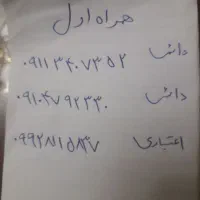 همراه اول
دائمی
۰۹۱۱۳۴۰۷۳۵۲
دائمی
۰۹۱۰۴۷۹۲۳۳۰
اعتباری
۰۹۹۲۸۱۵۸۳۷